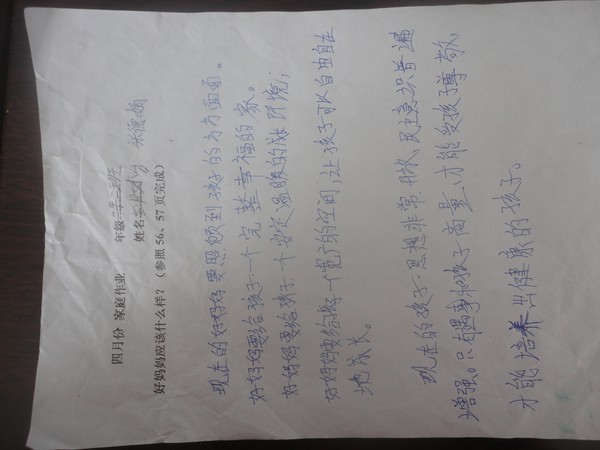 四月份 家庭作业 年级
姓名
好妈妈应该什么样?(参照56、57页完成)
现在的好妈妈要照顾到孩子的方方面面。
好妈妈要给孩子一个完整幸福的家。
好妈妈要给孩子一个安定温暖的成环境;
好妈妈要给孩子一个宽广的空间,让孩子可以自由自在
地成长。
现在的孩子思想非常 民主意识普遍
增强。只有遇事和孩子商量,才能受孩子尊敬,
才能培养出健康的孩子。